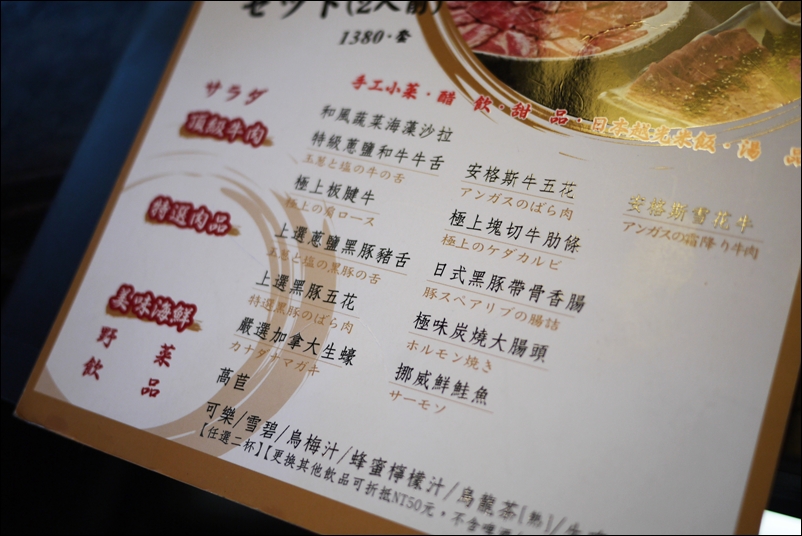 セット(2人前)
1380·套
手工小菜·醋飲·甜品·日本越光米飯·湯品
サラダ
和風蔬菜海藻沙拉
頂級牛肉
特級蔥鹽和牛牛舌 安格斯牛五花 安格斯雪花牛
玉葱と塩の牛の舌 アンガスのばら肉 アンガスの霜降り牛肉
極上板腱牛 極上塊切牛肋條
極上の肩ロース 極上のケダカルビ
特選肉品
上選蔥鹽黑豚豬舌 日式黑豚帶骨香腸
玉葱と塩の黒豚の舌 豚スペアリブの腸詰
上選黑豚五花 極味炭燒大腸頭
特選黒豚のばら肉 ホルモン焼き
美味海鮮
嚴選加拿大生蠔 挪威鮮鮭魚
カナダナマガキ サーモン
野菜
萵苣
飲品
可樂/雪碧/烏梅汁/蜂蜜檸檬汁/烏龍茶(熱)/生
【任選二杯】【更換其他飲品可折抵NT50元，不含